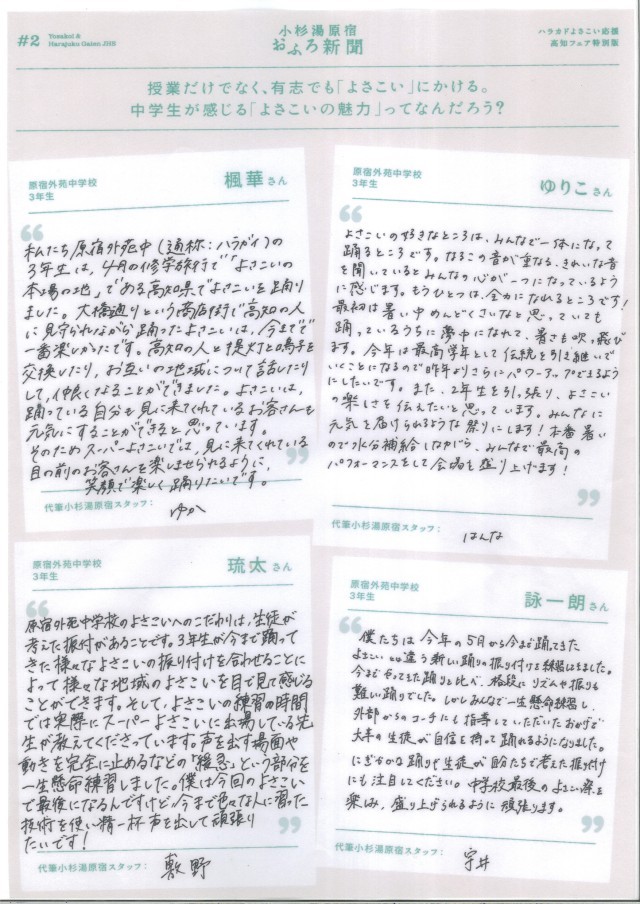 #2
Yosakoi &
Harajuku Gaien JHS
小杉湯原宿
おふろ新聞
ハラカドよさこい応援
高知フェア特別版
授業だけでなく、有志でも「よさこい」にかける。
中学生が感じる「よさこいの魅力」ってなんだろう?
原宿外苑中学校
3年生
楓華さん
私たち原宿外苑中(通称:ハラガイ)の
3年生は、4月の修学旅行で「よさこいの
本場の地」である高知県でよさこいを踊り
ました。大橋通りという商店街で高知の人
に見守られながら踊ったよさこいは、今までで
一番楽しかったです。高知の人と提灯と鳴子を
交換したり、お互いの地域について話したり
して、仲良くなることができました。よさこいは、
踊っている自分も見に来てくれているお客さんも
元気にすることができると思っています。
そのためスーパーよさこいでは、見に来てくれている
目の前のお客さんを楽しませられるように、
笑顔で楽しく踊りたいです。
代筆小杉湯原宿スタッフ:
ゆか
原宿外苑中学校
3年生
ゆりこさん
よさこいの好きなところは、みんなで一体になって
踊るところです。なるこの音が重なる、きれいな音
を聞いているとみんなの心が一つになっているよう
に感じます。もうひとつは、全力になれるところです!
最初は暑い中めんどくさいなと思っていても
踊っているうちに夢中になれて、暑さも吹っ飛び
ます。今年は最高学年として伝統を引き継いで
いくことになるので昨年よりさらにパワーアップできるよう
にしたいです。また、2年生を引っ張り、よさこい
の楽しさを伝えたいと思っています。みんなに
元気を届けられるような祭りにします!本番暑い
ので水分補給しながら、みんなで最高の
パフォーマンスをして会場を盛り上げます!
代筆小杉湯原宿スタッフ:
はんな
原宿外苑中学校
3年生
琉太さん
原宿外苑中学校のよさこいへのこだわりは、生徒が
考えた振付があることです。3年生が今まで踊って
きた様々なよさこいの振り付けを合わせることに
よって様々な地域のよさこいを目で見て感じる
ことができます。そして、よさこいの練習の時間
では実際にスーパーよさこいに出場している先
生が教えてくださっています。声を出す場面や
動きを完全に止めるなどの「緩急」という部分を
一生懸命練習しました。僕は今回のよさこい
で最後になるんですけど、今まで色々な人に習った
技術を使い精一杯声を出して頑張り
たいです!
代筆小杉湯原宿スタッフ:
敷野
原宿外苑中学校
3年生
詠一朗さん
僕たちは今年の5月から今まで踊ってきた
よさこいとは違う新しい踊りの振り付けを練習してきました。
今までやってきた踊りと比べ、格段にリズムや振りも
難しい踊りでした。しかしみんなで一生懸命練習し、
外部からのコーチにも指導していただいたおかげで
大半の生徒が自信を持って踊れるようになりました。
にぎやかな踊りや生徒が自分たちで考えた振り付け
にも注目してください。中学校最後のよさこい祭を
楽しみ、盛り上げられるように頑張ります。
代筆小杉湯原宿スタッフ:
宇井